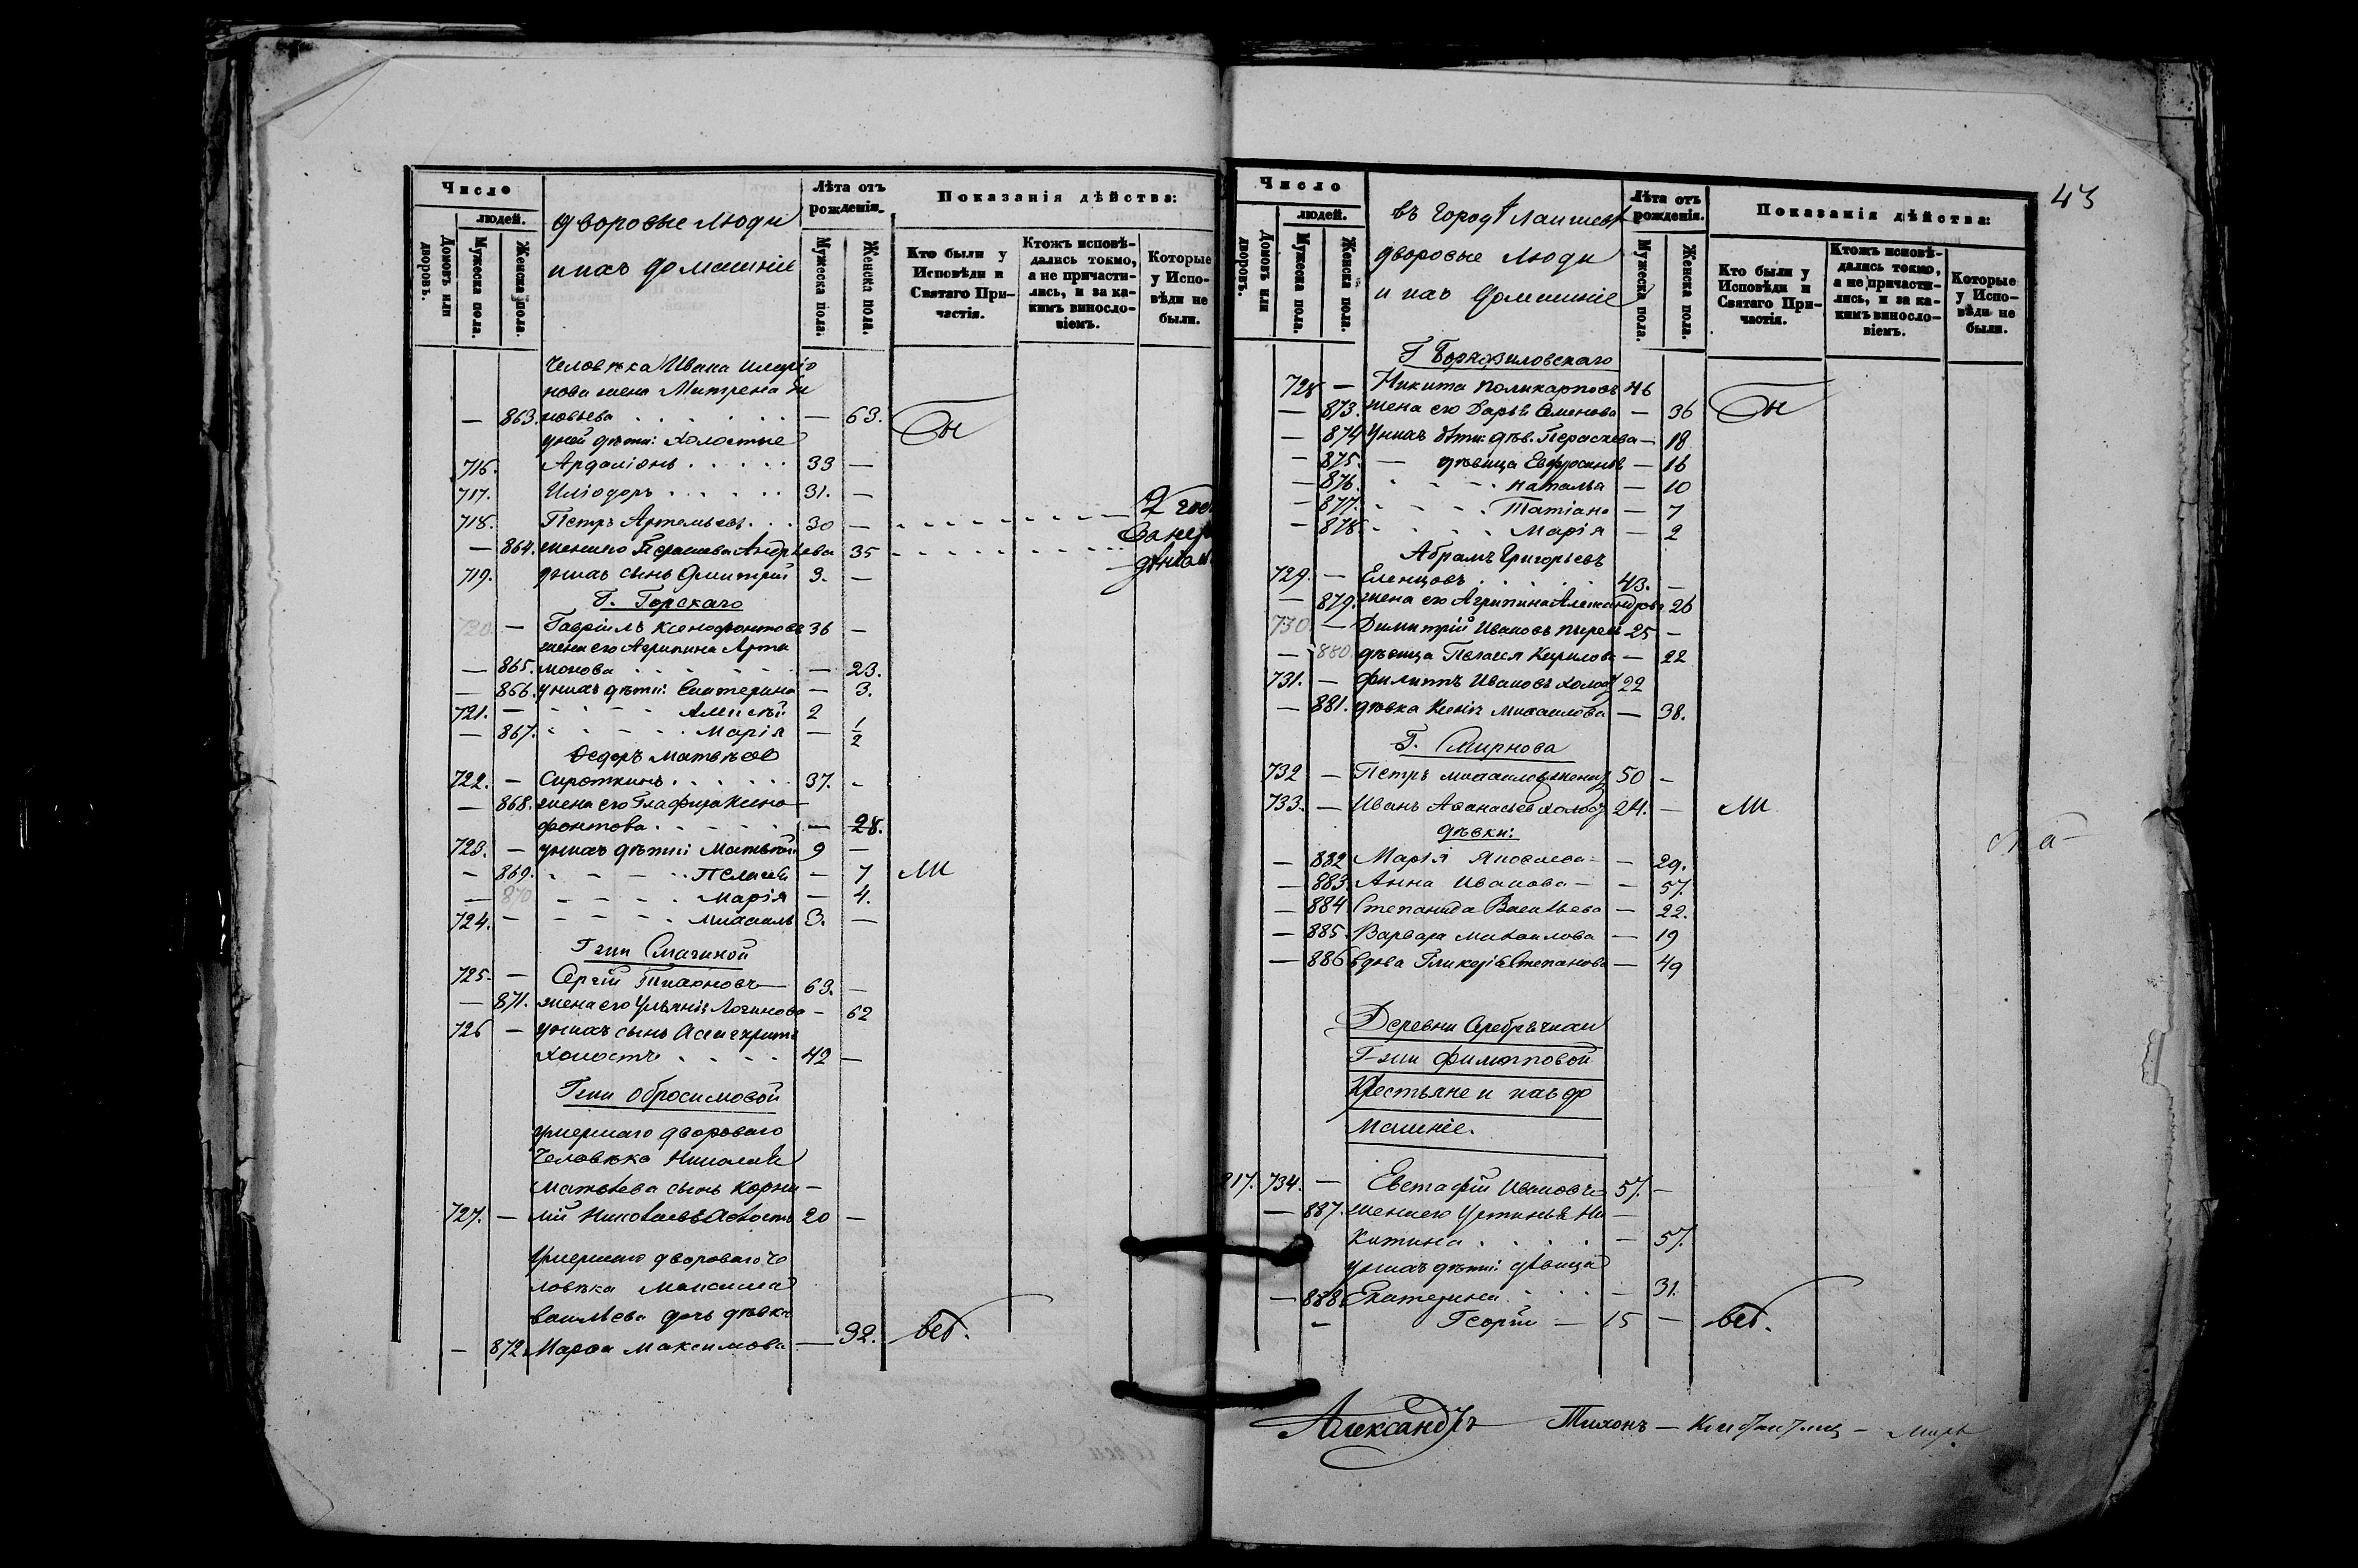 Число
людей.
Домовъ или дворовъ.
Мужеска пола.
Женска пола.
Дворовые люди
и ихъ домашніе
Лѣта отъ рожденія.
Мужеска пола.
Женска пола.
Показанія дѣйства:
Кто были у Исповѣди и Святаго Причастія.
Ктожъ исповѣдались токмо, а не причастились, и за какимъ винословіемъ.
Которые у Исповѣди не были.
Человѣка Ивана
нова жена Матрена
— 863. новьева . . . — 63. Бы
у ней дѣти: холостые
716. Ардаліонъ . . . . . 33 —
717. Иліодоръ . . . . . 31. —
718. Петръ Артемьевъ . . . 30 —
— 864. жена его Парасковья Андреева 35
719. у нихъ сынъ Дмитрій 3. —
Г. Горскаго
720. — Гавріилъ Ксенофонтовъ 36 —
жена его Агрипина Арта
— 865. монова — 23.
— 866. у нихъ дѣти: Екатерина — 3.
721. — Алексѣй 2
— 867. Марія — 1/2
Ѳедоръ Матвѣевъ
722. — Сироткинъ . . . . . 37. -
— 868. жена его Глафира Ксено
фонтова . . . . . — 28.
723. — у нихъ дѣти: Матвѣй 9 —
— 869. Пелагея — 7 ли
— 870 Марія — 4.
724. — Михаилъ 3. —
Гжи Смагиной
725. — Сергій Тихоновъ — 63. —
— 871. жена его Ульянія Логинова — 62
726 — у нихъ сынъ Асинкритъ
холостъ . . . . 42 —
Гжи Обросимовой
умершаго двороваго
человѣка Николая
Матвѣева сынъ Корни-
727. — лій Николаевъ холостъ 20 —
Умершаго двороваго че
ловѣка Максима
Васильева дочь дѣвка
— 872 Марфа Максимова — 32. веб.
43
Число
людей.
Домовъ или дворовъ.
Мужеска пола.
Женска пола.
въ городѣ Лаишевѣ
дворовые люди
и ихъ домашніе
Лѣта отъ рожденія.
Мужеска пола.
Женска пола.
Показанія дѣйства:
Кто были у Исповѣди и Святаго Причастія.
Ктожъ исповѣдались токмо, а не причастились, и за какимъ винословіемъ.
Которые у Исповѣди не были.
728 — Никита Поликарповъ 46
— 873. жена его Дарья Семенова — 36 Бы
— 874 у нихъ дѣти: дѣв. Параскева — 18
— 875. — дѣвица Евфросинія — 16
— 876. Наталья — 10
— 877. Татіана — 7
— 878. Марія — 2
Абрамъ Григорьевъ
729. — Еленцовъ . . . . 43. —
— 879. жена его Агрипина Александрова 26
730 — Димитрій Ивановъ 25 —
— 880. дѣвица Пелагея Кирилова — 22
731. — Филиппъ Ивановъ холост 22
— 881. дѣвка Ксенія Михаилова — 38.
Г. Смирнова
732 — Петръ Михаиловъ женат 50 —
733. — Иванъ Аѳанасьевъ холост 24. — ли
дѣвки:
— 882 Марія Яковлева — 29.
— 883. Анна Иванова — — 57.
— 884 Степанида Васильева — 22.
— 885. Варвара Михаилова — 19
— 886 вдова Гликерія Степанова — 49
Деревни Серебрячихи
Г-жи Филипповой
Крестьяне и ихъ до
машніе.
217. 734. — Евстафій Ивановъ 57. —
— 887. жена его Устинья Ни —
китина . . . . — 57.
у нихъ дѣти: дѣвица
— 888. Екатерина . . . — 31.
— Георгій — 15 — веб.
Александръ Тихонъ —